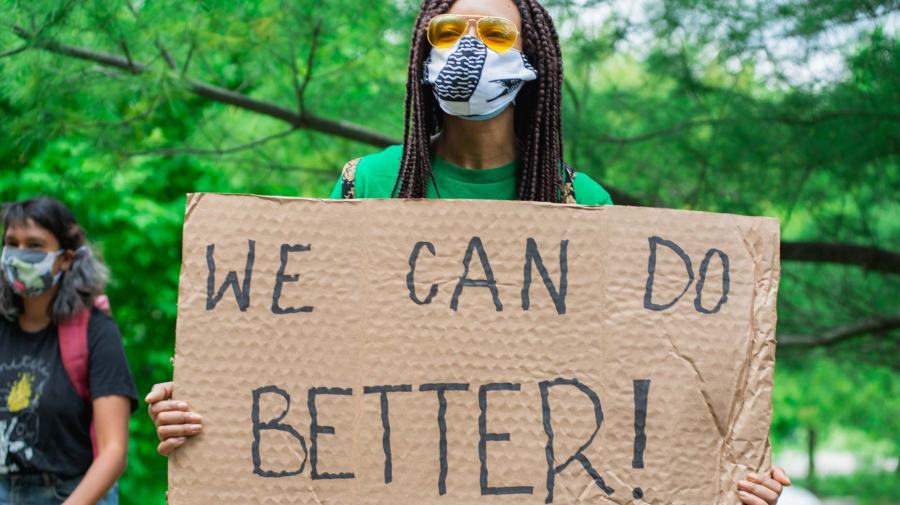 WE CAN DO
BETTER!